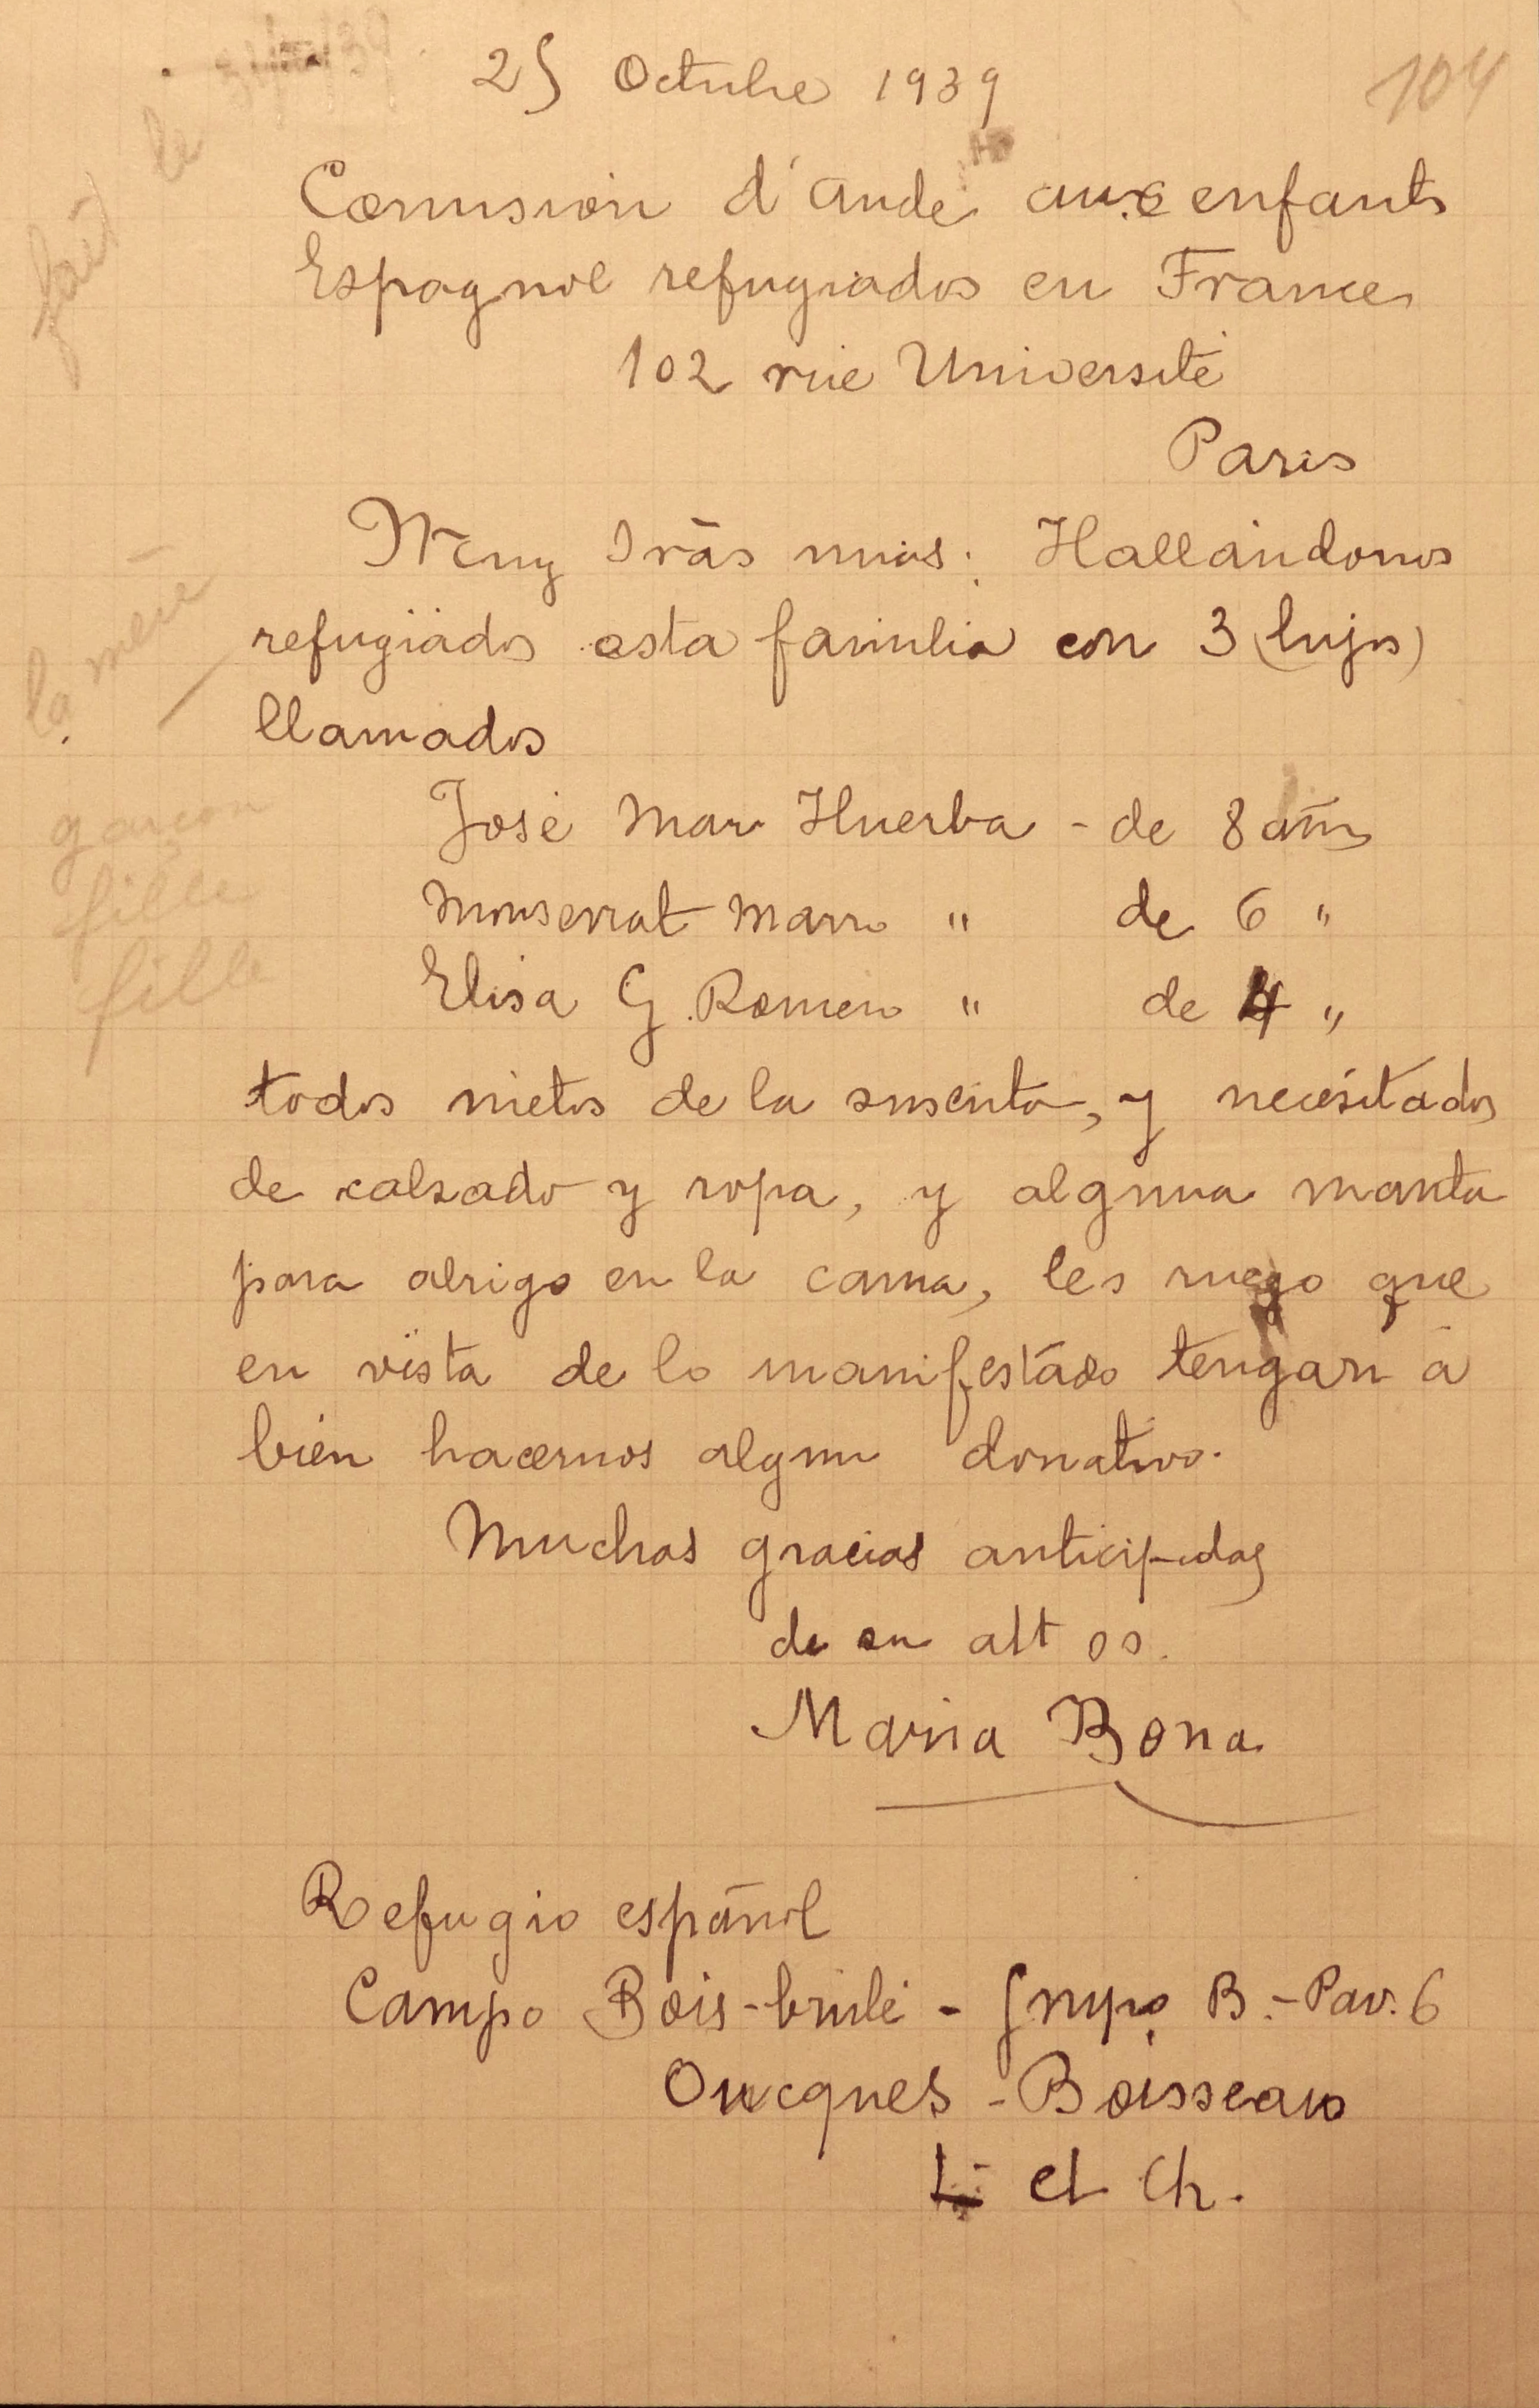 25 Octubre 1939
104
fait le
Comision d'aude aux enfants
Espagnol refugiados en France
102 rue Université
Paris
Muy Sras mias: Hallandonos
la mère
refugiados esta familia con 3 (hijos)
llamados
José Mar Huerba - de 8 años
garçon
Monserrat Marro " de 6 "
fille
Elisa G. Romero " de 4 "
fille
todos nietos de la suscrita, y necesitados
de calzado y ropa, y alguna manta
para abrigo en la cama, les ruego que
en vista de lo manifestado tengan a
bien hacernos algun donativo.
Muchas gracias anticipadas
de su att ss.
Maria Bona
Refugio español
Campo Bois-brulé - Grupo B.- Pav. 6
Oucques - Boisseau
L. et Ch.